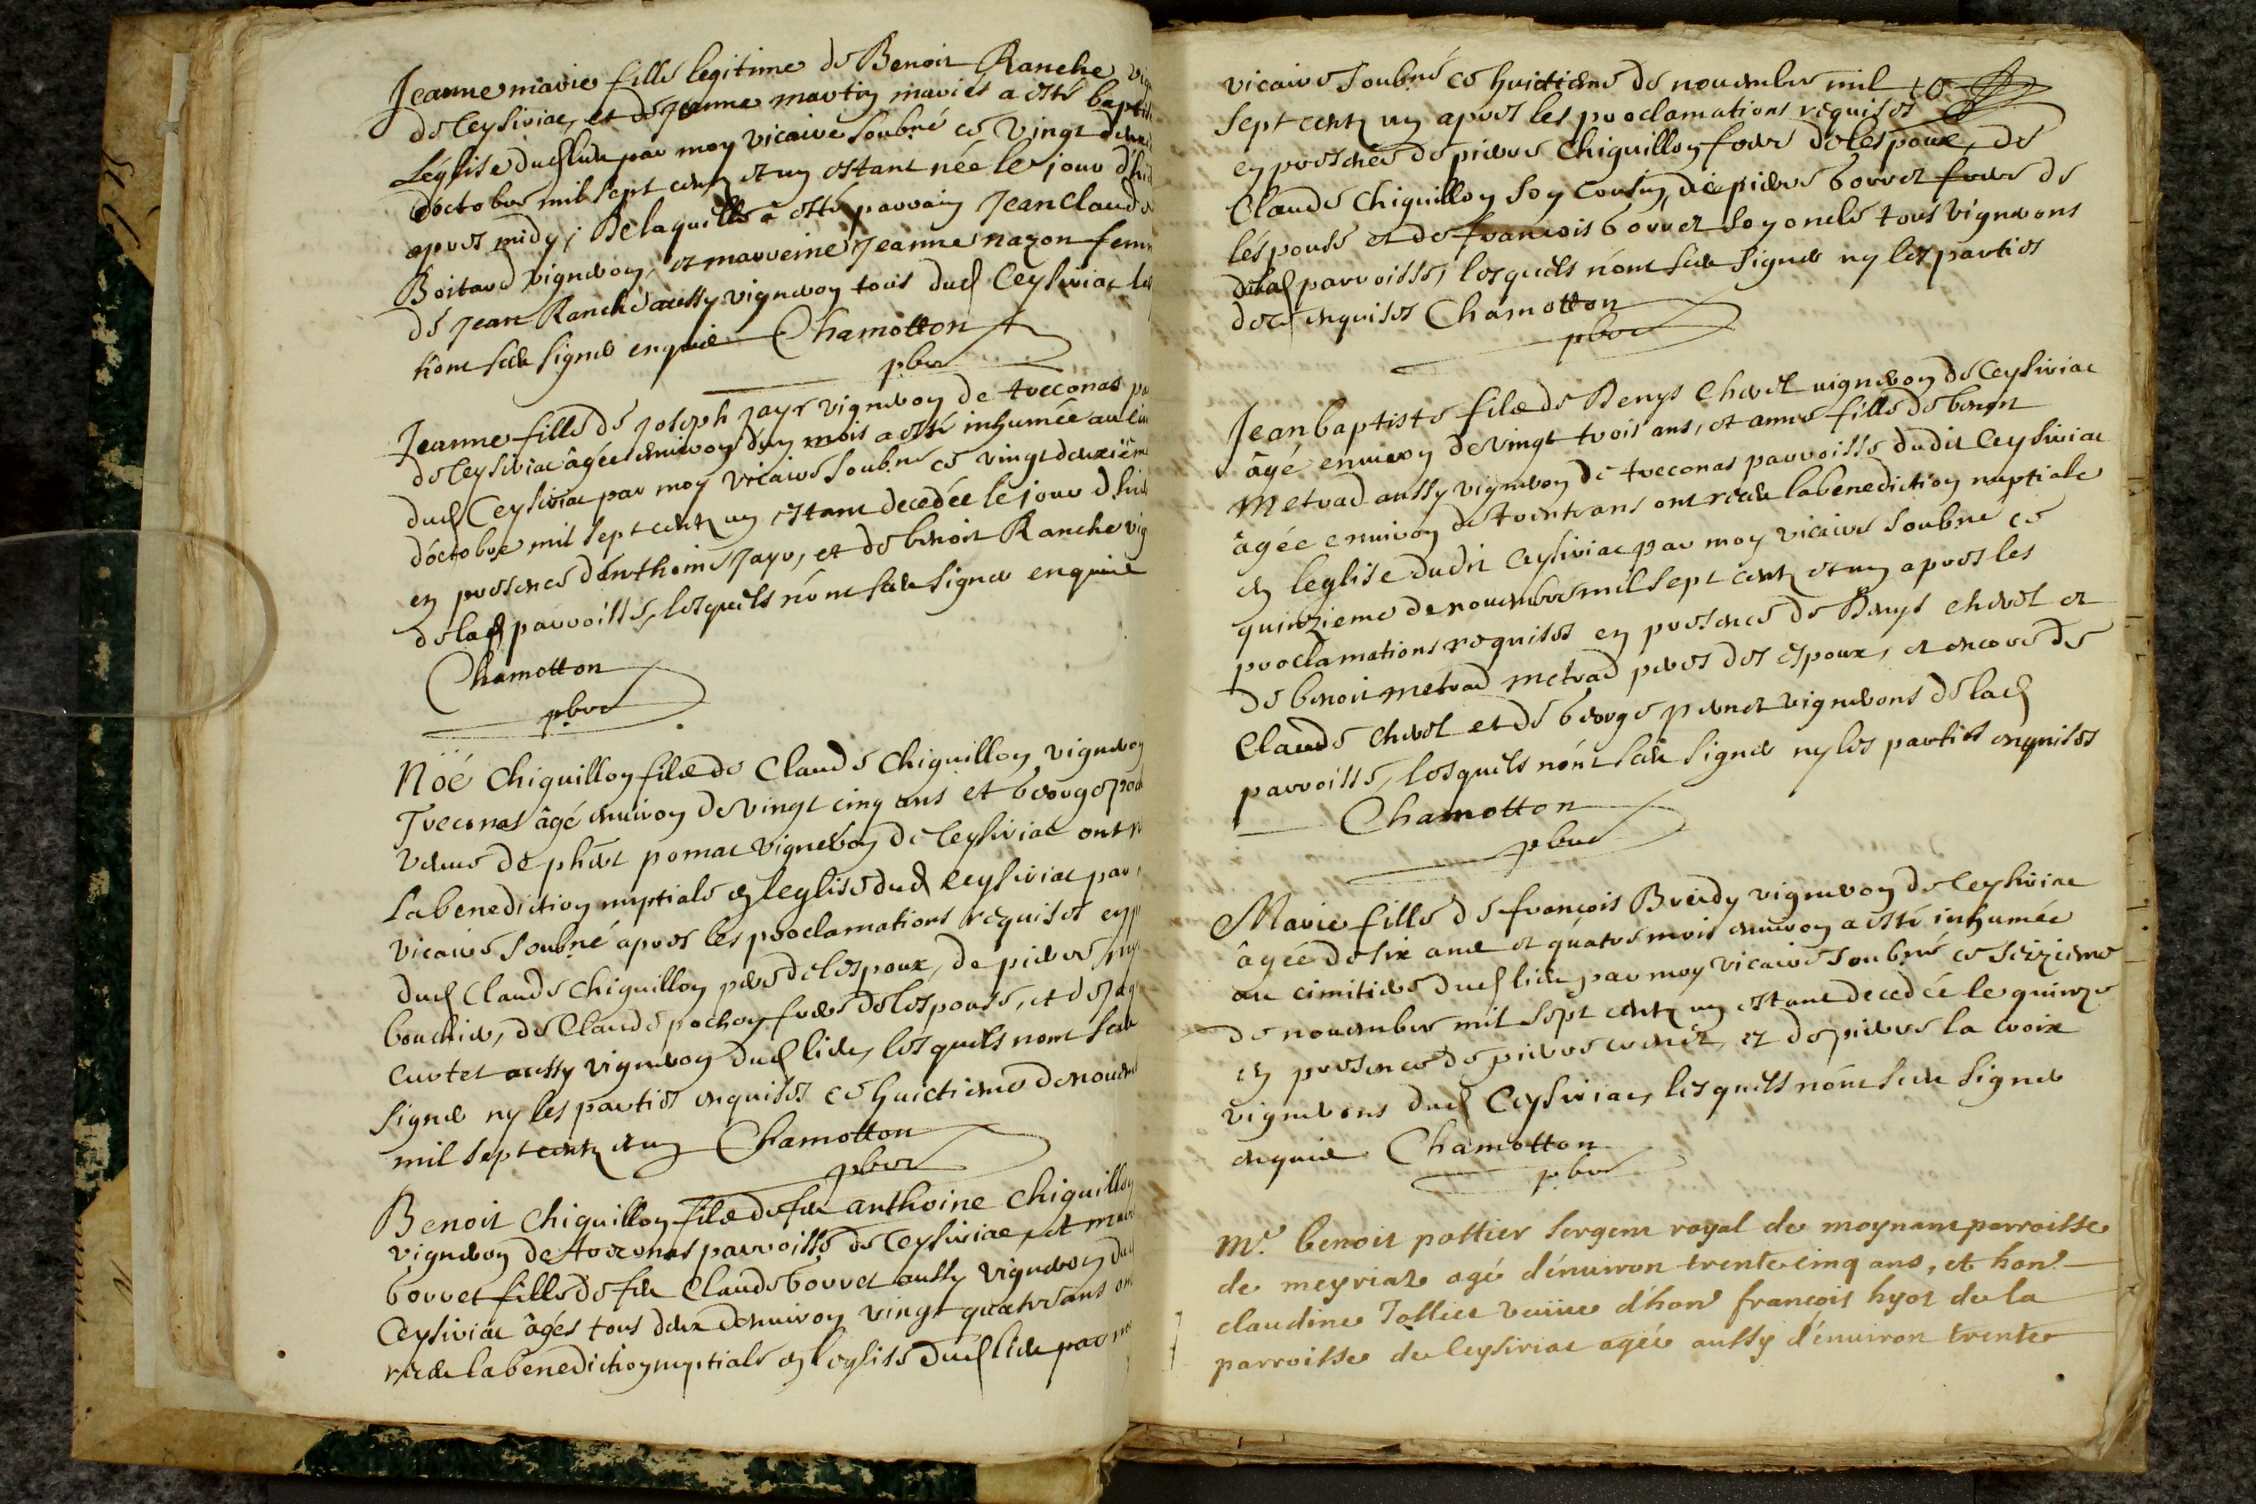 Jeanne marie fille legitime de Benoit Ranche
de Ceysiriac, et de Jeanne martin mariés a esté bapti
Léglise dud lieu par moy vicaire soubné ce vingt deux
doctobre mil sept centz et un estant née le jour d'hui
apres midy; De laquelle a esté parrain Jean Claude
Boitard vigneron, et marreine Jeanne nazon fem
de Jean Ranche aussy vigneron tous dud Ceysiriac
n'ont sceu signer enquis Chamotton
pbre
Jeanne fille de Joseph Jayr vigneron de treconas
de Ceysiriac âgée environ d'un mois a esté inhumée au
dud Ceysiriac par moy vicaire soubné ce vingt deuxiéme
d'octobre mil sept centz un estant decedée le jour d'hui
en presence d'Anthoine Jayr, et de benoit Ranche vig
de lad parroisse, lesquels n'ont sceu signer enquis
Chamotton
pbre
Nöé Chiguillon filz de Claude Chiguillon vigneron
Treconas âgé environ de vingt cinq ans et george
veuve de phibt pomat vigneron de Ceysiriac ont
La benediction nuptiale en leglise dud Ceysiriac par
vicaire soubné apres les proclamations requises en
dud Claude Chiguillon pere de lespoux, de pierre
bouchir, de Claude pochon frere de lespouse, et de
curtet aussy vigneron dud lieu, lesquels n'ont sceu
signer ny les parties enquises ce huictieme de
mil sept centz et un Chamotton
pbre
Benoit Chiguillon filz de feu anthoine Chiguillon
vigneron de treconas parroisse de Ceysiriac, et
borret fille de feu Claude borret aussy vigneron
Ceysiriac âgés tous deux denviron vingt quatre ans
receu la benediction nuptiale en leglise dud lieu par
vicaire soubné ce huictieme de novembre mil
sept centz un apres les proclamations requises
en presence de pierre Chiguillon frere de lespoux, de
Claude Chiguillon son cousin, de pierre borret frere de
léspouse et de francois borret son oncle tous vignerons
de lad parroisse, lesquels n'ont sceu signer ny les parties
de ce enquises Chamotton
pbre
Jean baptiste filz de Denys Chevel vigneron de Ceysiriac
âgé environ de vingt trois ans, et anne fille de benoit
metrad aussy vigneron de treconas parroisse dudit Ceysiriac
âgée environ de trente ans ont receu la benediction nuptiale
en leglise dudit Ceysiriac par moy vicaire soubné ce
quinzieme de novembre mil sept centz et un apres les
proclamations requises en presence de Denys chevel et
de benoit metrad metrad peres des espoux, et encore de
Claude chevel et de george pernet vignerons de lad
parroisse, lesquels n'ont sceu signer ny les parties enquises
Chamotton
pbre
Marie fille de francois Breidy vigneron de Ceysiriac
âgée de six ans et quatre mois environ a esté inhumée
au cimitiere dud lieu par moy vicaire soubné ce seizieme
de novembre mil sept centz un estant decedée le quinze
en presence de pierre et de pierre la croix
vignerons dud Ceysiriac, lesquells n'ont sceu signer
enquis Chamotton
pbre
Me. benoit pottier sergent royal de moynant parroisse
de meyriat agé d'environ trente cinq ans, et hon
claudine Tollier veuve d'hon françois hyot de la
parroisse de Ceysiriac agée aussy d'environ trente